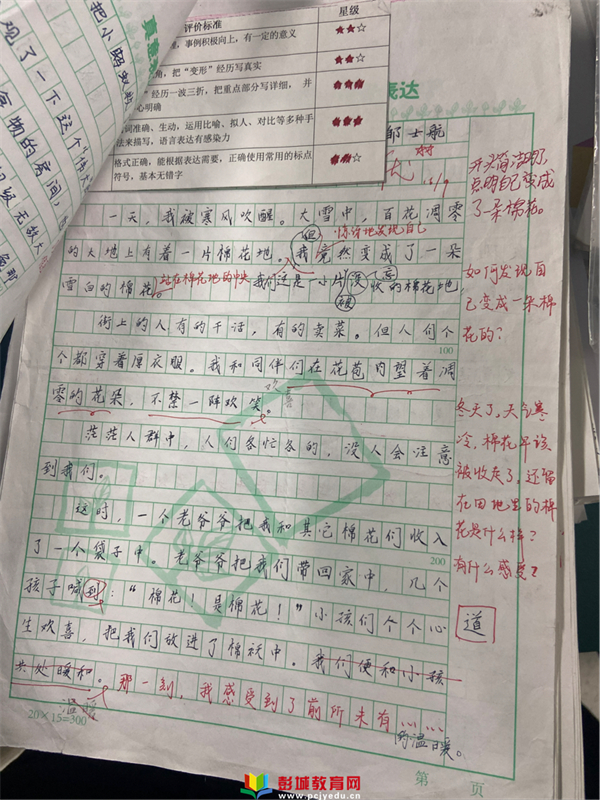 把小昭
观了一下这个
食物的房间,
级无敌大
真意
评价标准 星级
事例积极向上,有一定的意义 ★★☆
角,把“变形”经历写真实 ★★☆
经历一波三折,把重点部分写详细,并
心明确 ★★★
词准确、生动,运用比喻、拟人、对比等多种手
法来描写,语言表达有感染力 ★★★
格式正确,能根据表达需要,正确使用常用的标点
符号,基本无错字
表达
士航
一天,我被寒风吹醒。大雪中,百花凋零
惊讶地发现自己
的大地上有着一片棉花地。但我竟然变成了一朵
雪白的棉花。站在棉花地的中央我们这是一小片没被收的棉花地,
街上的人有的干活,有的卖菜。但人们个
100
个都穿着厚衣服。我和同伴们在花苞内望着凋
零的花朵,不禁一阵欢笑。
茫茫人群中,人们各忙各的,没人会注意
到我们。
这时,一个老爷爷把我和其它棉花们收入
200
了一个袋子中。老爷爷把我们带回家中,几个
孩子喊到:“棉花!是棉花!”小孩们个个心
生欢喜,把我们放进了棉袄中。我们便和小孩
共处暖和。那一刻,我感受到了前所未有……
温暖
的温暖。
20×15=300
第 页
开头简洁明了,
点明自己变成
了一朵棉花。
如何发现自
己变成一朵棉
花的?
冬天了,天气寒
冷,棉花早该
被收走了,还留
在田地里的棉
花是什么样?
有什么感受?
道
彭城教育网
www.pcjyedu.cn